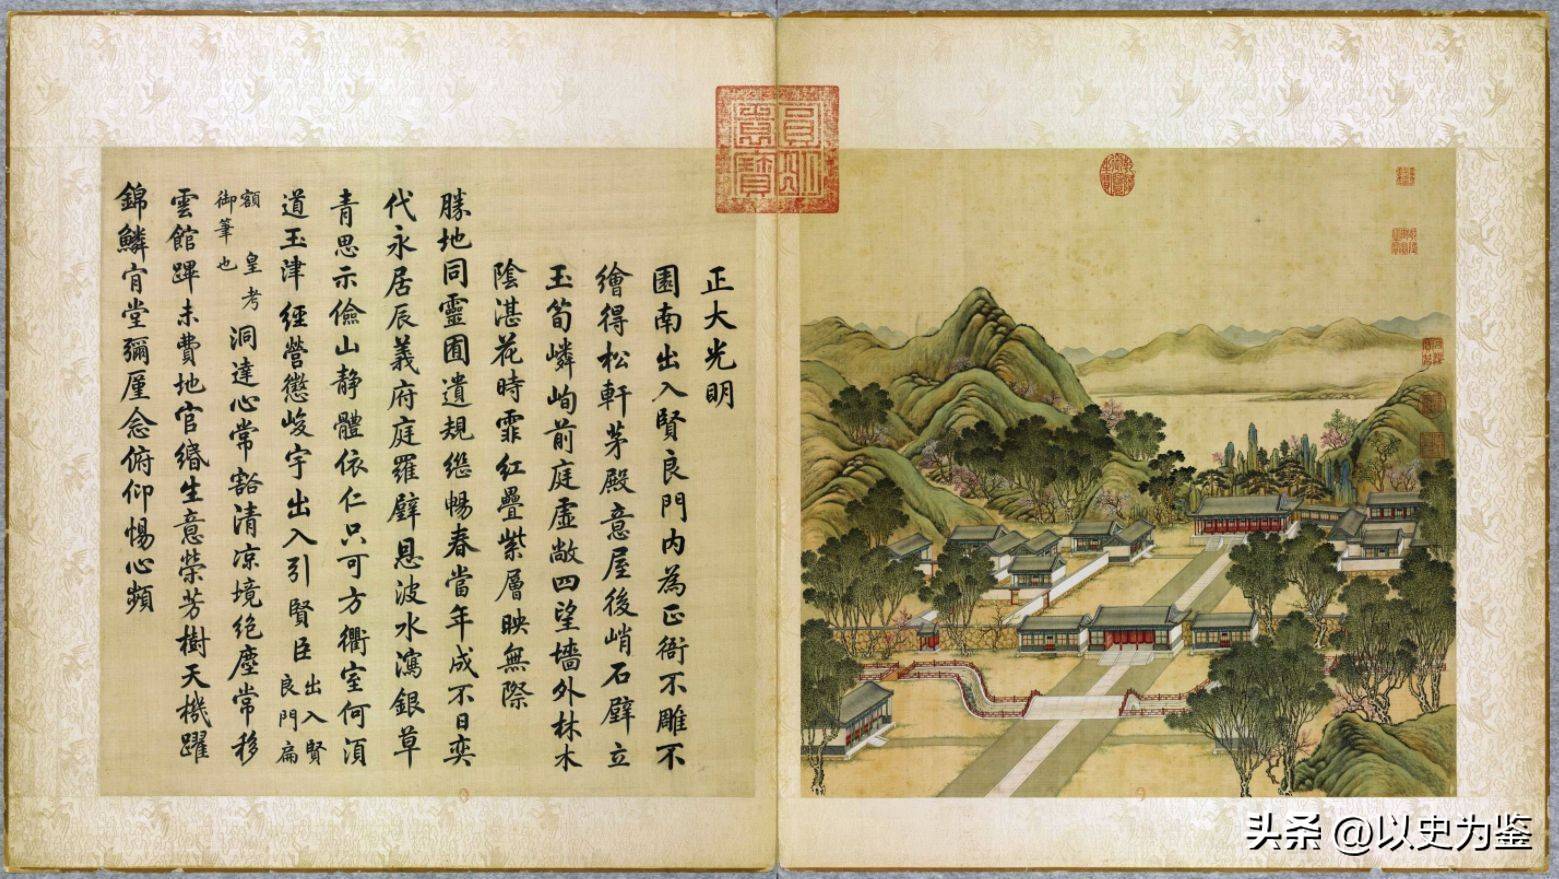 正大光明
園南出入賢良門内為正衙不雕不
繪得松軒茅殿意屋後峭石壁立
玉筍嶙峋前庭虚敞四望墻外林木
陰湛花時霏紅疊紫層映無際
勝地同靈囿遺規繼暢春當年成不日奕
代永居辰義府庭羅璧恩波水瀉銀草
青思示儉山静體依仁只可方衢室何湏
道玉津經營懲峻宇出入引賢臣
出入賢
良門扁
額 皇考
御筆也
洞達心常豁清凉境絶塵常移
雲館蹕未費地官緡生意榮芳樹天機躍
錦鱗肎堂彌厪念俯仰惕心頻
头条 @以史为鉴